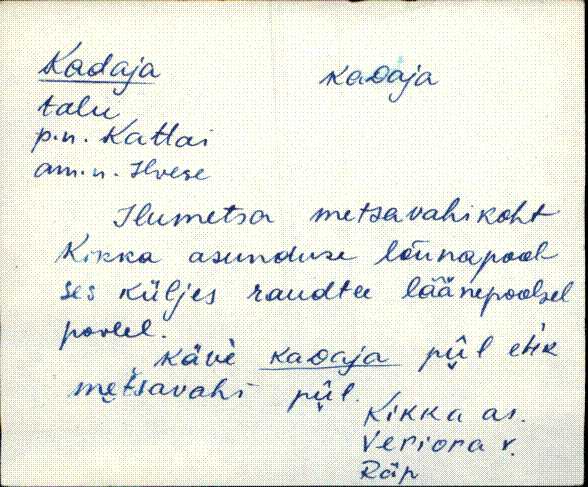 Kadaja
kadaja
talu
p.n. Kattai
am.n. Ilvese
Ilumetsa metsavahikoht
Kikka asunduse lõunapool-
ses küljes raudtee läänepoolsel
poolel.
kävè kadaja pül ehk
metsavahi pül.
Kikka as.
Veriora v.
Räp